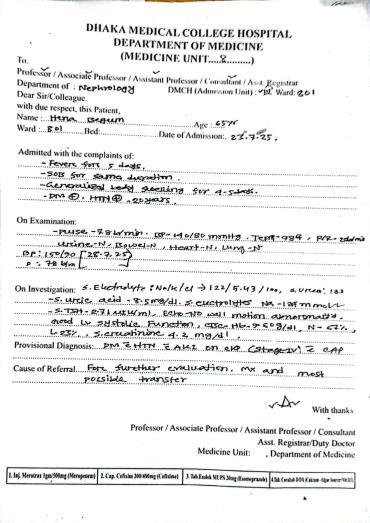 DHAKA MEDICAL COLLEGE HOSPITAL
DEPARTMENT OF MEDICINE
(MEDICINE UNIT....8.........)
To,
Professor / Associate Professor / Assistant Professor / Consultant / Asst. Registrar
Department of : Nephrology DMCH (Admission Unit) : Ward: 801
Dear Sir/Colleague.
with due respect, this Patient,
Name : Hena Begum Age : 65Y
Ward : 801 Bed: Date of Admission: 23.7.25.
Admitted with the complaints of:
- Fever for 5 days.
- SOB for same duration.
- Generalised body swelling for 4-5 days.
- DM ⊕, HTN ⊕, 20 years.
On Examination:
- Pulse - 78 b/min, BP - 140/80 mmHg, Temp - 98.4,
Urine-N, Bowel-N, Heart-N, Lung-N
BP: 150/90 [28.7.25]
P: 78 b/m
On Investigation: S. Electrolyte: Na/K/Cl → 122/5.43/100, S. Urea:
- S. uric acid - 8.5 mg/dl. S. electrolytes Na - mmol/L
- S. TSH - Echo - No wall motion abnormality.
Good LV systolic Function, CBC, Hb - 9.6 g/dl, N - 62%,
L - S. creatinine 4.2 mg/dl.
Provisional Diagnosis: DM c̄ HTN c̄ AKI on CKD (Stage IV) c̄ CAP
Cause of Referral: For further evaluation, mx and most
possible transfer
With thanks
Professor / Associate Professor / Assistant Professor / Consultant
Asst. Registrar/Duty Doctor
Medicine Unit: , Department of Medicine
1. Inj. Merotrax 1gm/500mg (Meropenem) 2. Cap. Cefixim 200/400mg (Cefixime) 3. Tab. Esolok MUPS 20mg (Esomeprazole)